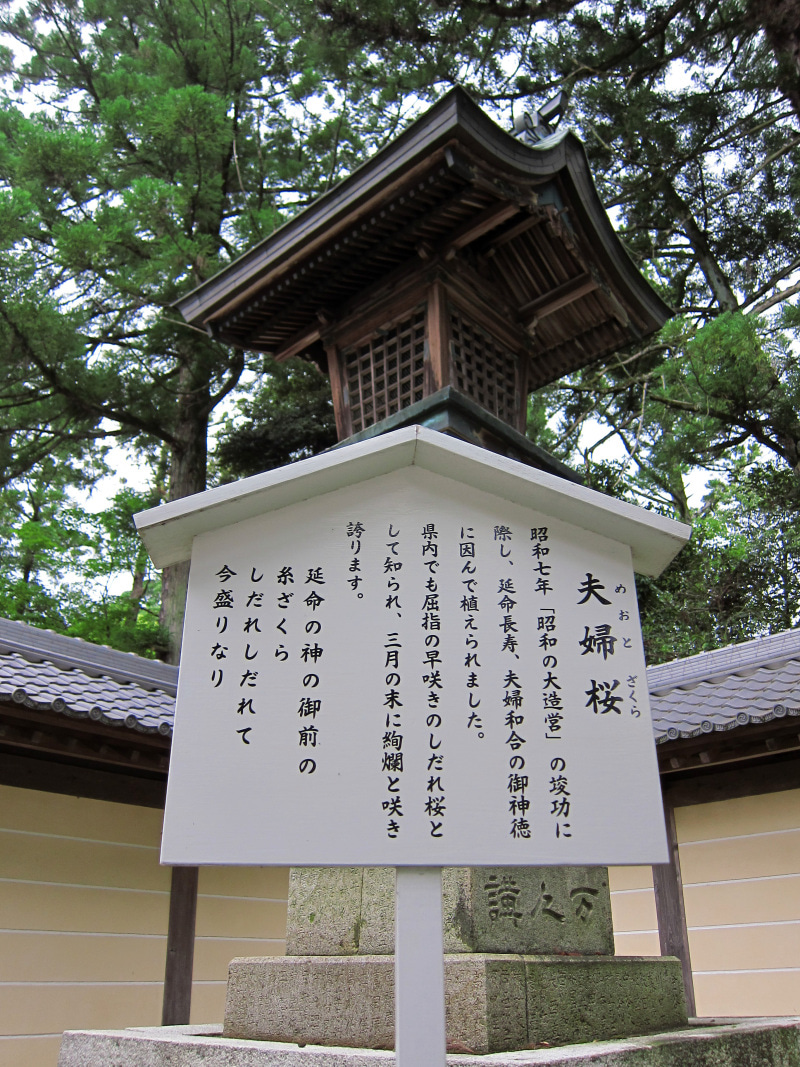 夫婦桜
めおと
ざくら
昭和七年「昭和の大造営」の竣功に
際し、延命長寿、夫婦和合の御神徳
に因んで植えられました。
県内でも屈指の早咲きのしだれ桜と
して知られ、三月の末に絢爛と咲き
誇ります。
延命の神の御前の
糸ざくら
しだれしだれて
今盛りなり
万之